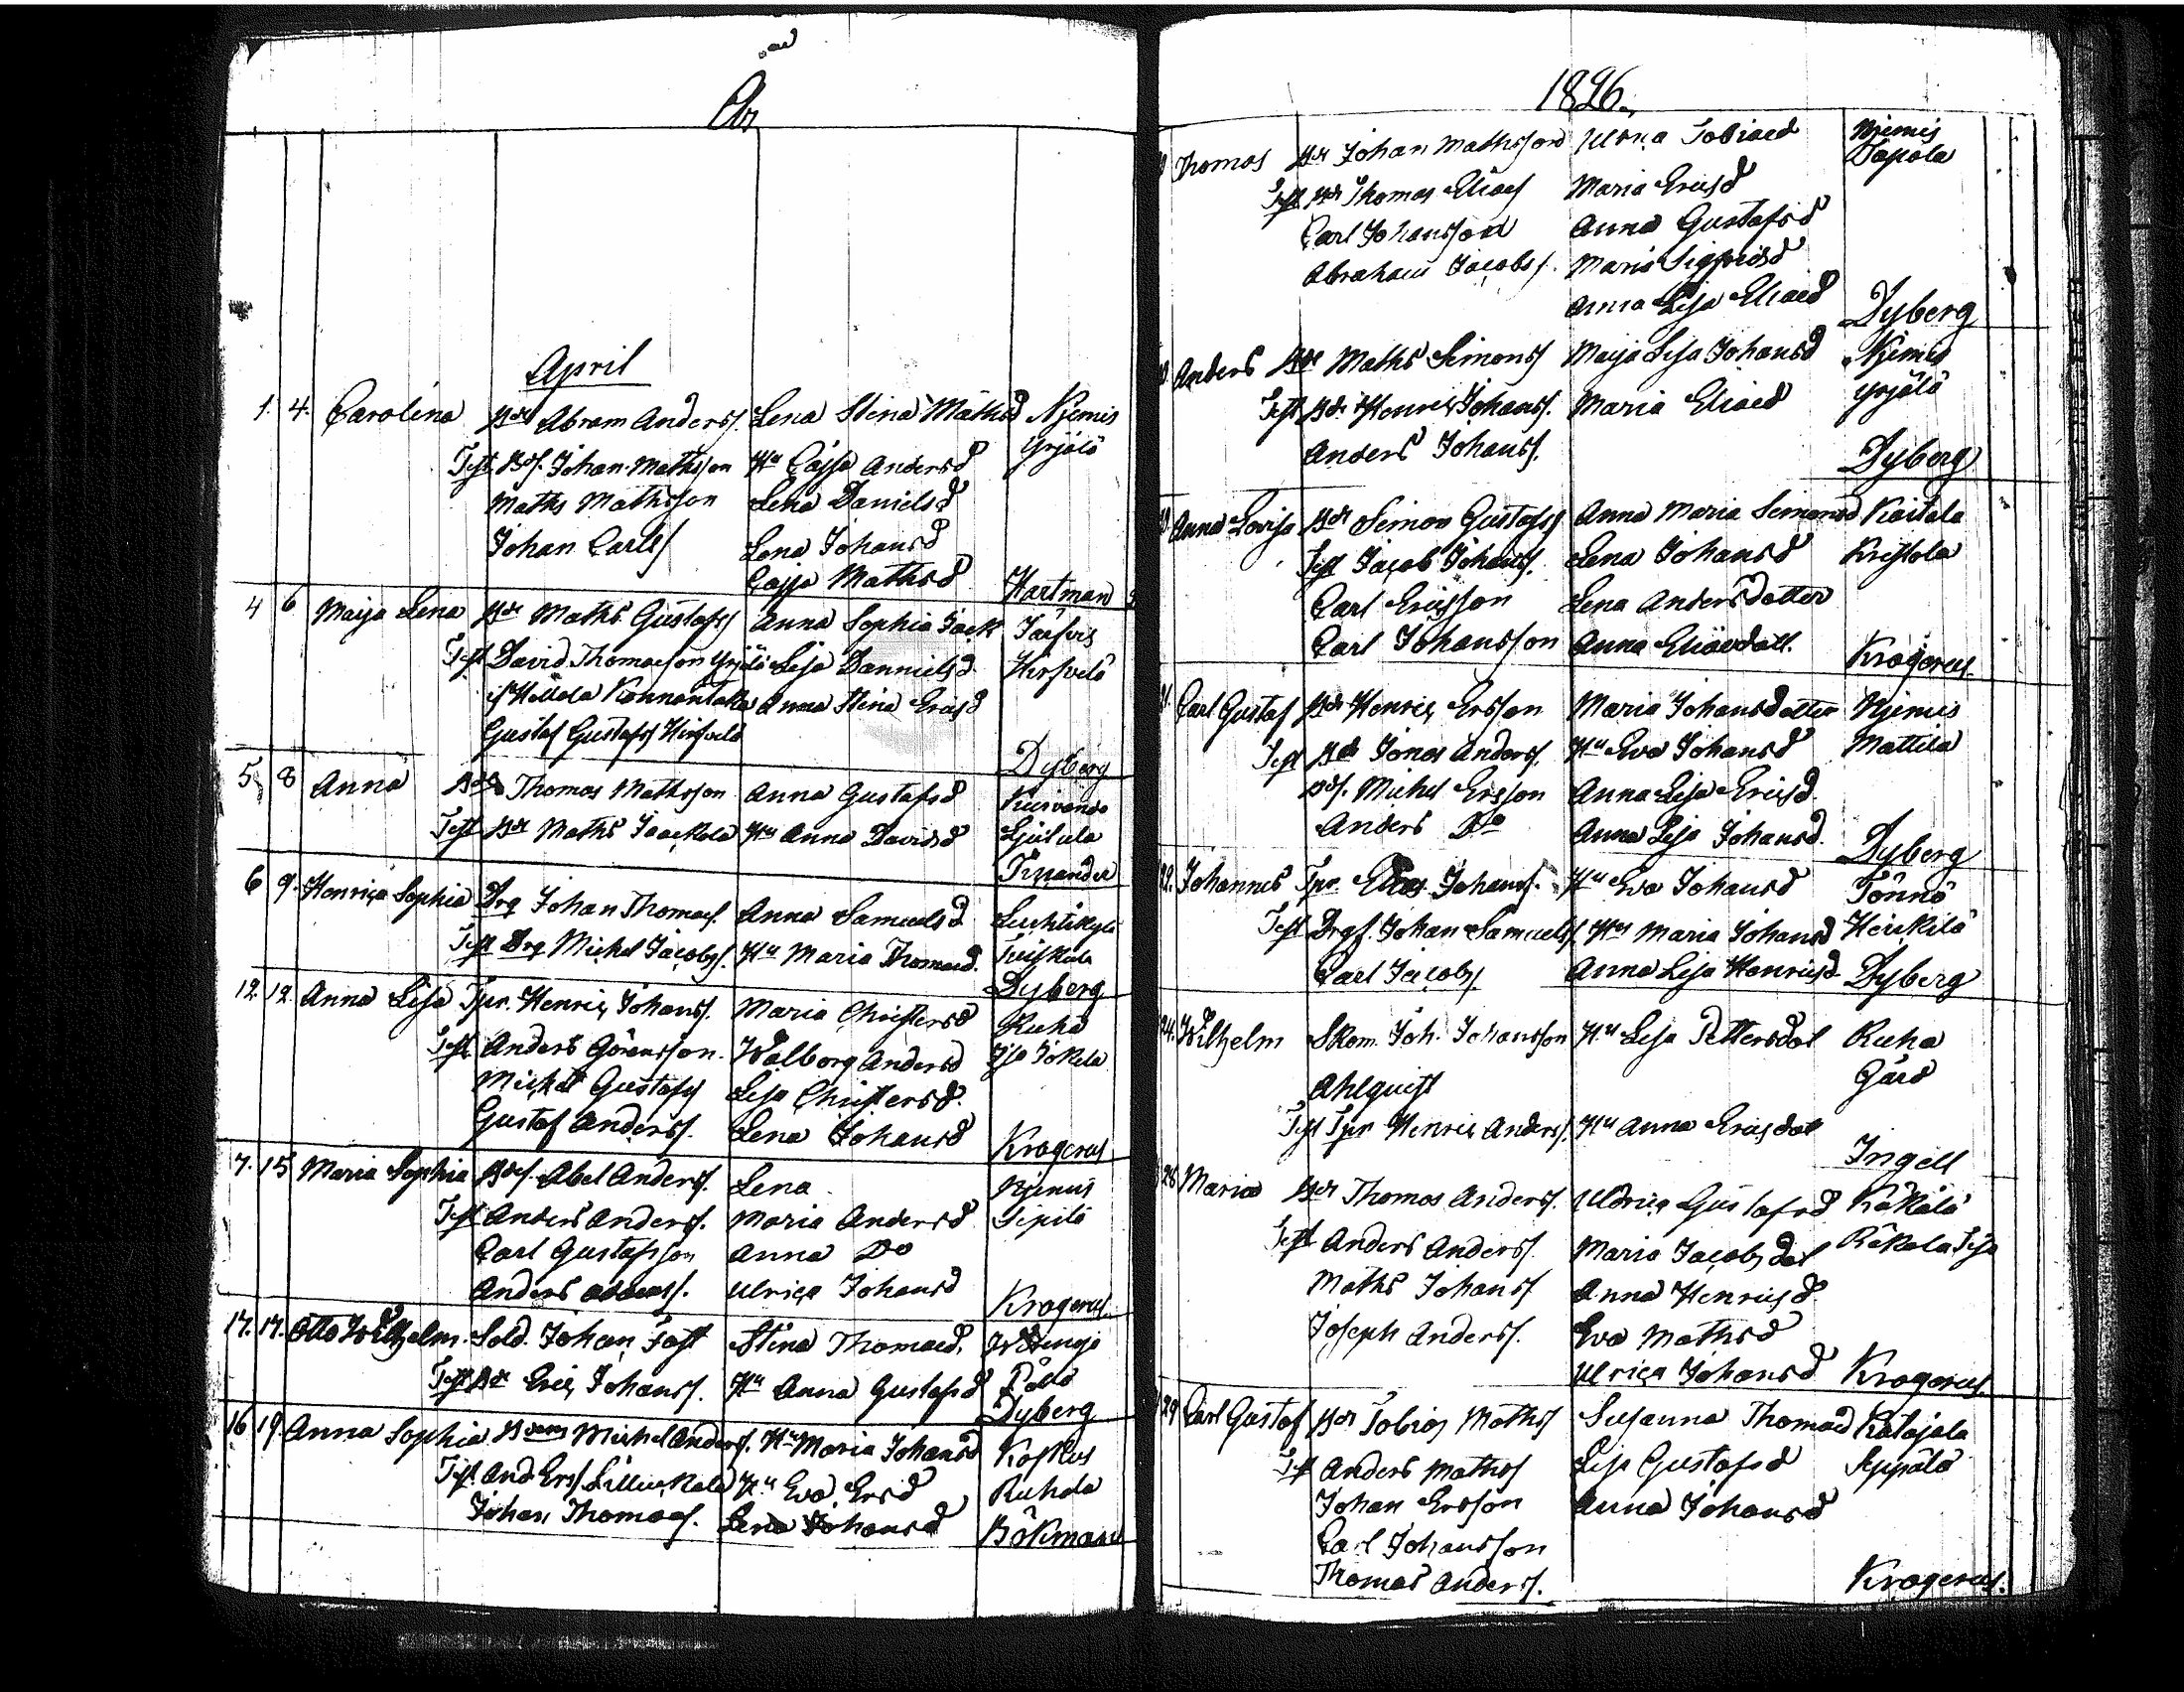 År
April
1. 4. Carolina Bdr Abram Anders. Lena Stina Mathsd Njemis
Test Bds. Johan Mathsson Hu Cajsa Andersd Yrjälä
Maths Mathsson Lena Danielsd
Johan Carls Lena Johansd
Cajsa Mathsd Hartman
4 6 Maija Lena Bdr Maths Gustafss Anna Sophia
Test David Thomasson Yrjälä Lisa Dannielsd Hirfvelä
Anna Stina Ericsd
Gustaf Gustafss Hirfvelä
Dyberg
5 8 Anna Thomas Mathsson Anna Gustafsd
Test Bdr Maths Jaackola Hu Anna Davidsd
6 9. Henrica Sophia Drg Johan Thomas. Anna Samuelsd
Test Drg Michel Jacobs. Hu Maria Thomasd.
Dyberg
12. 12. Anna Lisa Tpr. Henric Johans. Maria Christersd Ruha
Test Anders Göransson. Walborg Andersd Iso Jokela
Michel Gustafss Lisa Christersd.
Gustaf Anderss. Lena Johansd
Krogerus
7. 15 Maria Sophia Bds. Abel Anders. Lena Njemis
Test Anders Anders. Maria Andersd Sipilä
Carl Gustafsson Anna Do
Anders Ulrica Johansd
Krogerus.
17. 17. Otto Wilhelm. Sold. Johan Stina Thomasd.
Test Bdr Eric Johanss. Hu Anna Gustafsd
Dyberg
16 19. Anna Sophia Michel Anders. Hu Maria Johansd
Test And Ers Hu Eva Ersd
Johan Thomas. Lena Johansd Bökman
1826.
Thomas Bdr Johan Mathsson Ulrica Tobiaed Njemis
Tapola
Test Bdr Thomas Elias Maria Ericsd
Carl Johansson Anna Gustafsd
Abraham Jacobs. Maria Sigfridsd
Anna Lisa Eliaed
Dyberg
Anders Bdr Maths Simonss Maija Lisa Johansd Njemis
Test Bdr Henric Johanss. Maria Eliaed Yrjälä
Anders Johanss.
Dyberg
Anna Lovisa Bdr Simon Gustafss Anna Maria Simonsd Kaitala
Test Jacob Johanss. Lena Johansd
Carl Ericsson Lena Andersdotter
Carl Johansson Anna Eliaedott.
Krogerus.
Carl Gustaf Bdr Henric Ersson Maria Johansdotter Njemis
Test Bdr Jonas Anders. Hu Eva Johansd Mattila
Bds. Michel Ersson Anna Lisa Ericsd.
Anders Do Anna Lisa Johansd.
Dyberg
22. Johannes Tpr. Elias Johanss. Hu Eva Johansd
Test Drgs. Johan Samuels. Hu Maria Johansd Heikilä
Carl Jacobs. Anna Lisa Henricsd Dyberg
24. Wilhelm Skom. Joh. Johansson Hu Lisa Pettersdot Ruha
Ahlquist Gård
Test Tpr Henric Anders. Hu Anna Ericsdot
Ingell
28 Maria Bdr Thomas Anders. Uldrica Gustafsd
Test Anders Anders. Maria Jacobsdot
Maths Johanss Anna Henricsd
Joseph Anderss. Eva Mathsd
Ulrica Johansd Krogerus.
29 Carl Gustaf Bdr Tobias Mathss Susanna Thomasd Katajala
Test Anders Mathss Lisa Gustafsd Seppälä
Johan Ersson Anna Johansd
Carl Johansson
Thomas Anderss.
Krogerus.